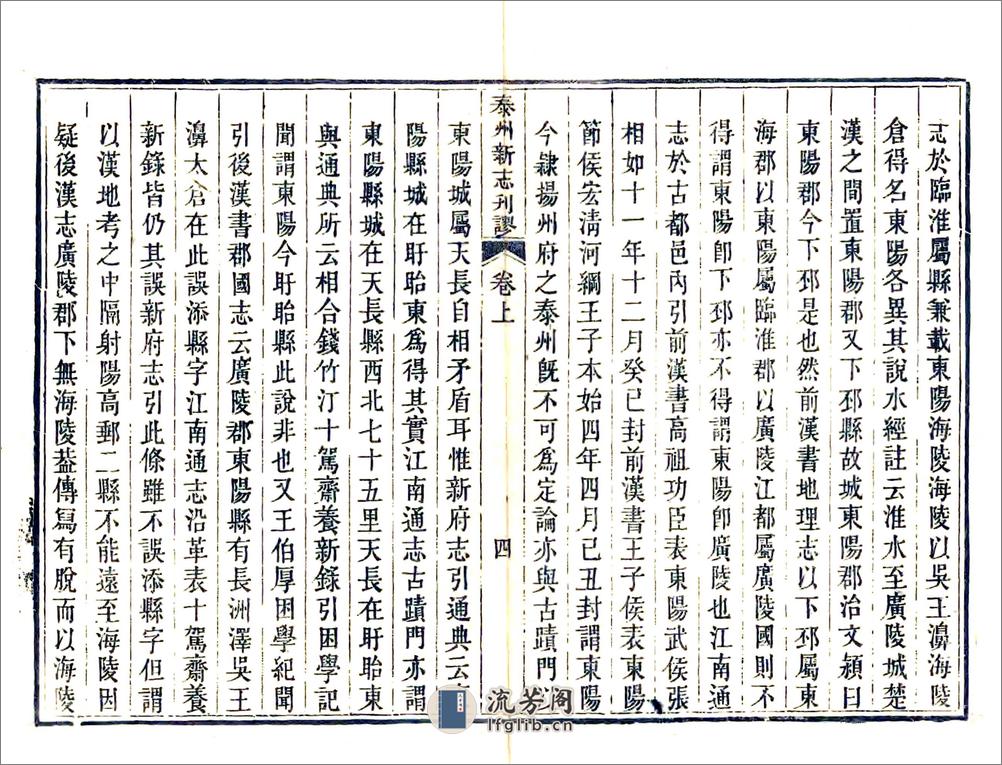 志於臨淮屬縣兼載東陽海陵海陵以吳王濞海陵
倉得名東陽各異其說水經註云淮水至廣陵城楚
漢之間置東陽郡又下邳縣故城東陽郡治文潁曰
東陽郡今下邳是也然前漢書地理志以下邳屬東
海郡以東陽屬臨淮郡以廣陵江都屬廣陵國則不
得謂東陽卽下邳亦不得謂東陽卽廣陵也江南通
志於古都邑內引前漢書高祖功臣表東陽武侯張
相如十一年十二月癸巳封前漢書王子侯表東陽
節侯宏淸河綱王子本始四年四月己丑封謂東陽
今隸揚州府之泰州旣不可爲定論亦與古蹟門
泰州新志刊謬 卷上 四
東陽城屬天長自相矛盾耳惟新府志引通典云
陽縣城在盱眙東爲得其實江南通志古蹟門亦謂
東陽縣城在天長縣西北七十五里天長在盱眙東
與通典所云相合錢竹汀十駕齋養新錄引困學記
聞謂東陽今盱眙縣此說非也又王伯厚困學紀聞
引後漢書郡國志云廣陵郡東陽縣有長洲澤吳王
濞太倉在此誤添縣字江南通志沿革表十駕齋養
新錄皆仍其誤新府志引此條雖不誤添縣字但謂
以漢地考之中隔射陽高郵二縣不能遠至海陵因
疑後漢志廣陵郡下無海陵葢傳寫有脫而以海陵
流芳阁
lfglib.cn